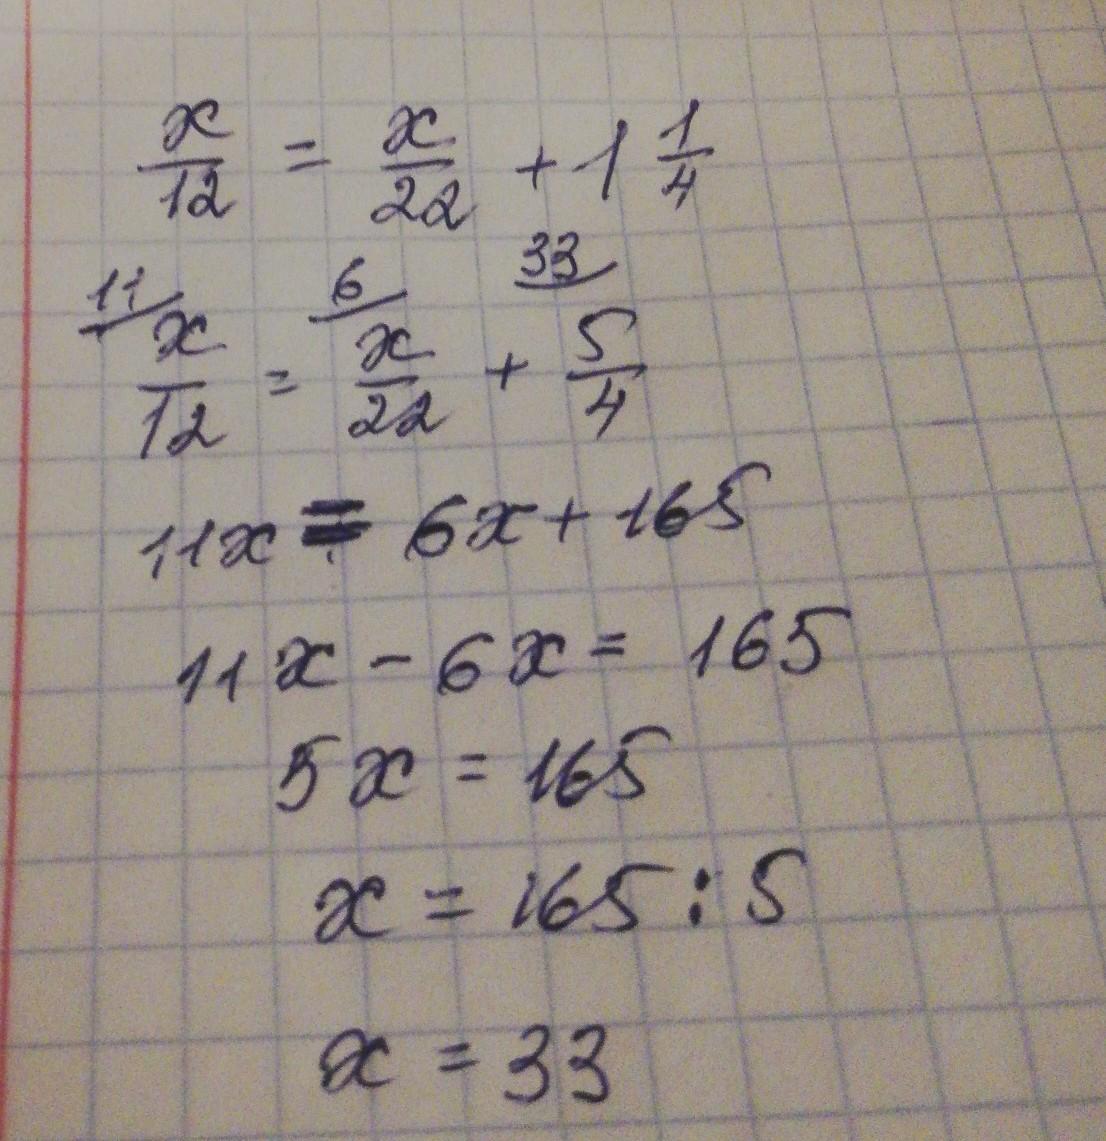 x/12 = x/22 + 1 1/4
11/ 6/ 33/
x/12 = x/22 + 5/4
11x = 6x + 165
11x - 6x = 165
5x = 165
x = 165 : 5
x = 33